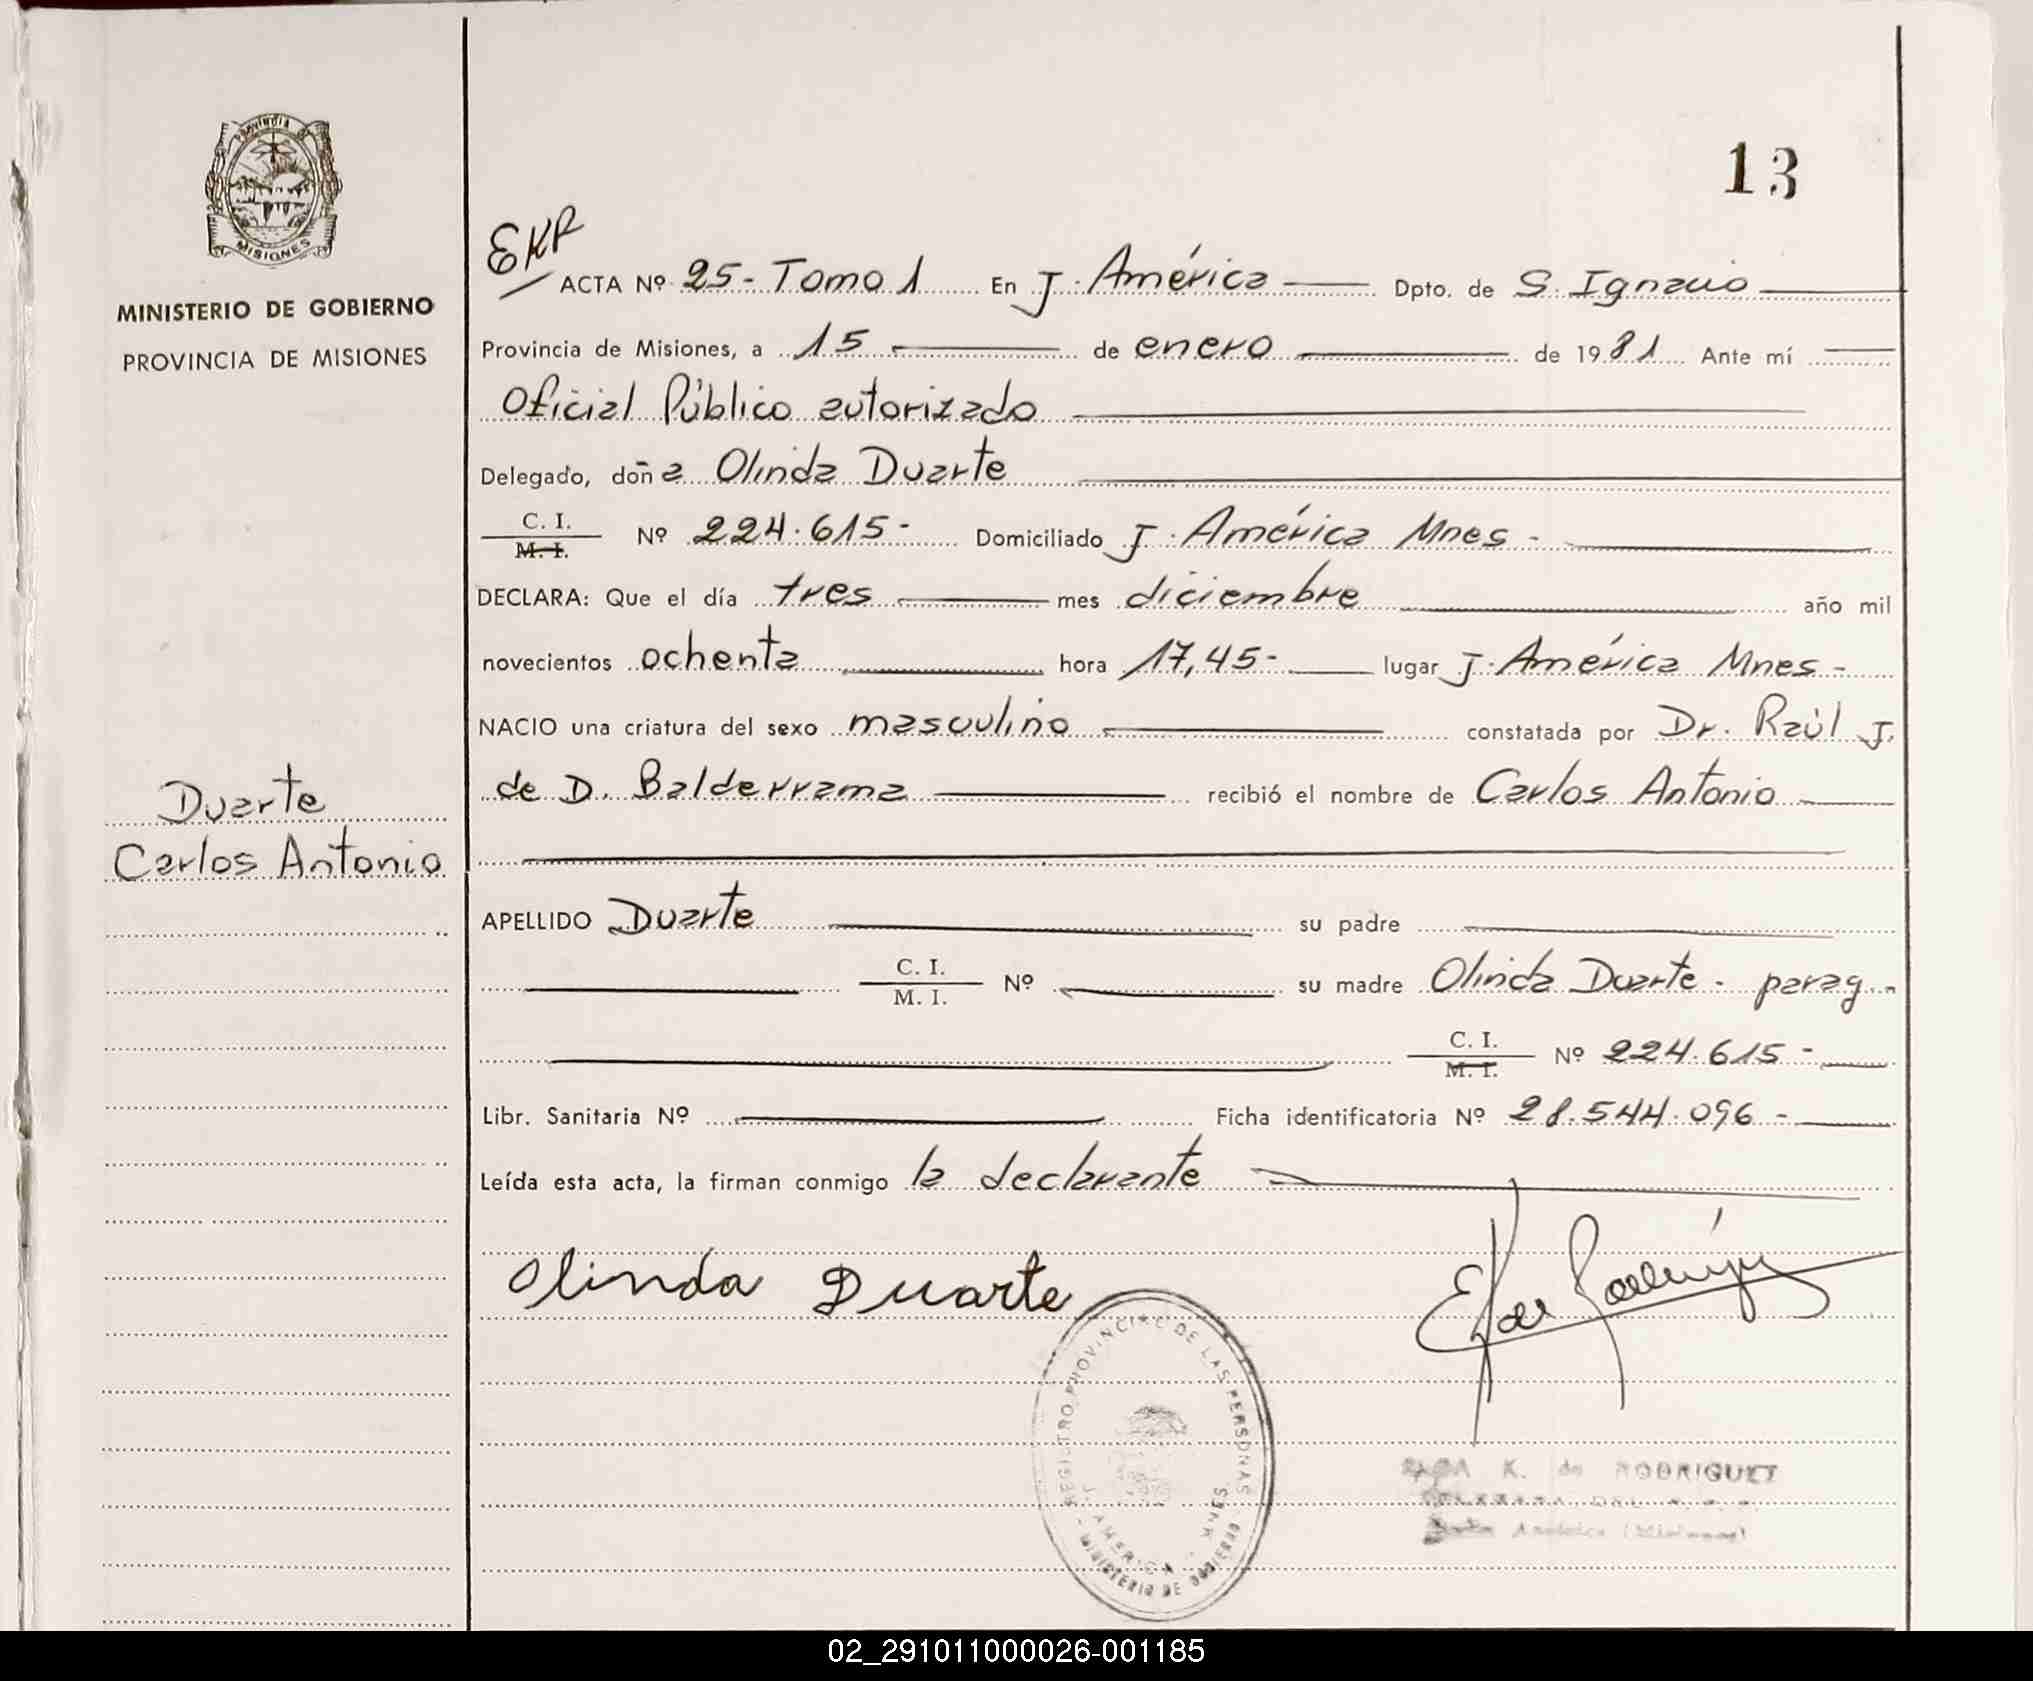 PROVINCIA DE
MISIONES
MINISTERIO DE GOBIERNO
PROVINCIA DE MISIONES
Duarte
Carlos Antonio
13
EKR
ACTA Nº 25- Tomo 1 En J. América Dpto. de S. Ignacio
Provincia de Misiones, a 15 de enero de 1981 Ante mí
Oficial Público autorizado
Delegado, doña Olinda Duarte
C. I.
M. I. Nº 224.615- Domiciliado J. América Mnes -
DECLARA: Que el día tres mes diciembre año mil
novecientos ochenta hora 17,45- lugar J. América Mnes -
NACIO una criatura del sexo masculino constatada por Dr. Raúl J.
de D. Balderrama recibió el nombre de Carlos Antonio
APELLIDO Duarte su padre
C. I.
M. I. Nº su madre Olinda Duarte - parag -
C. I.
M. I. Nº 224.615 -
Libr. Sanitaria Nº Ficha identificatoria Nº 28.544.096 -
Leída esta acta, la firman conmigo la declarante
Olinda Duarte
REGISTRO PROVINCIAL DE LAS PERSONAS
J. AMERICA - MNES.
MINISTERIO DE GOBIERNO
K. de RODRIGUEZ
América (Misiones)
02_291011000026-001185